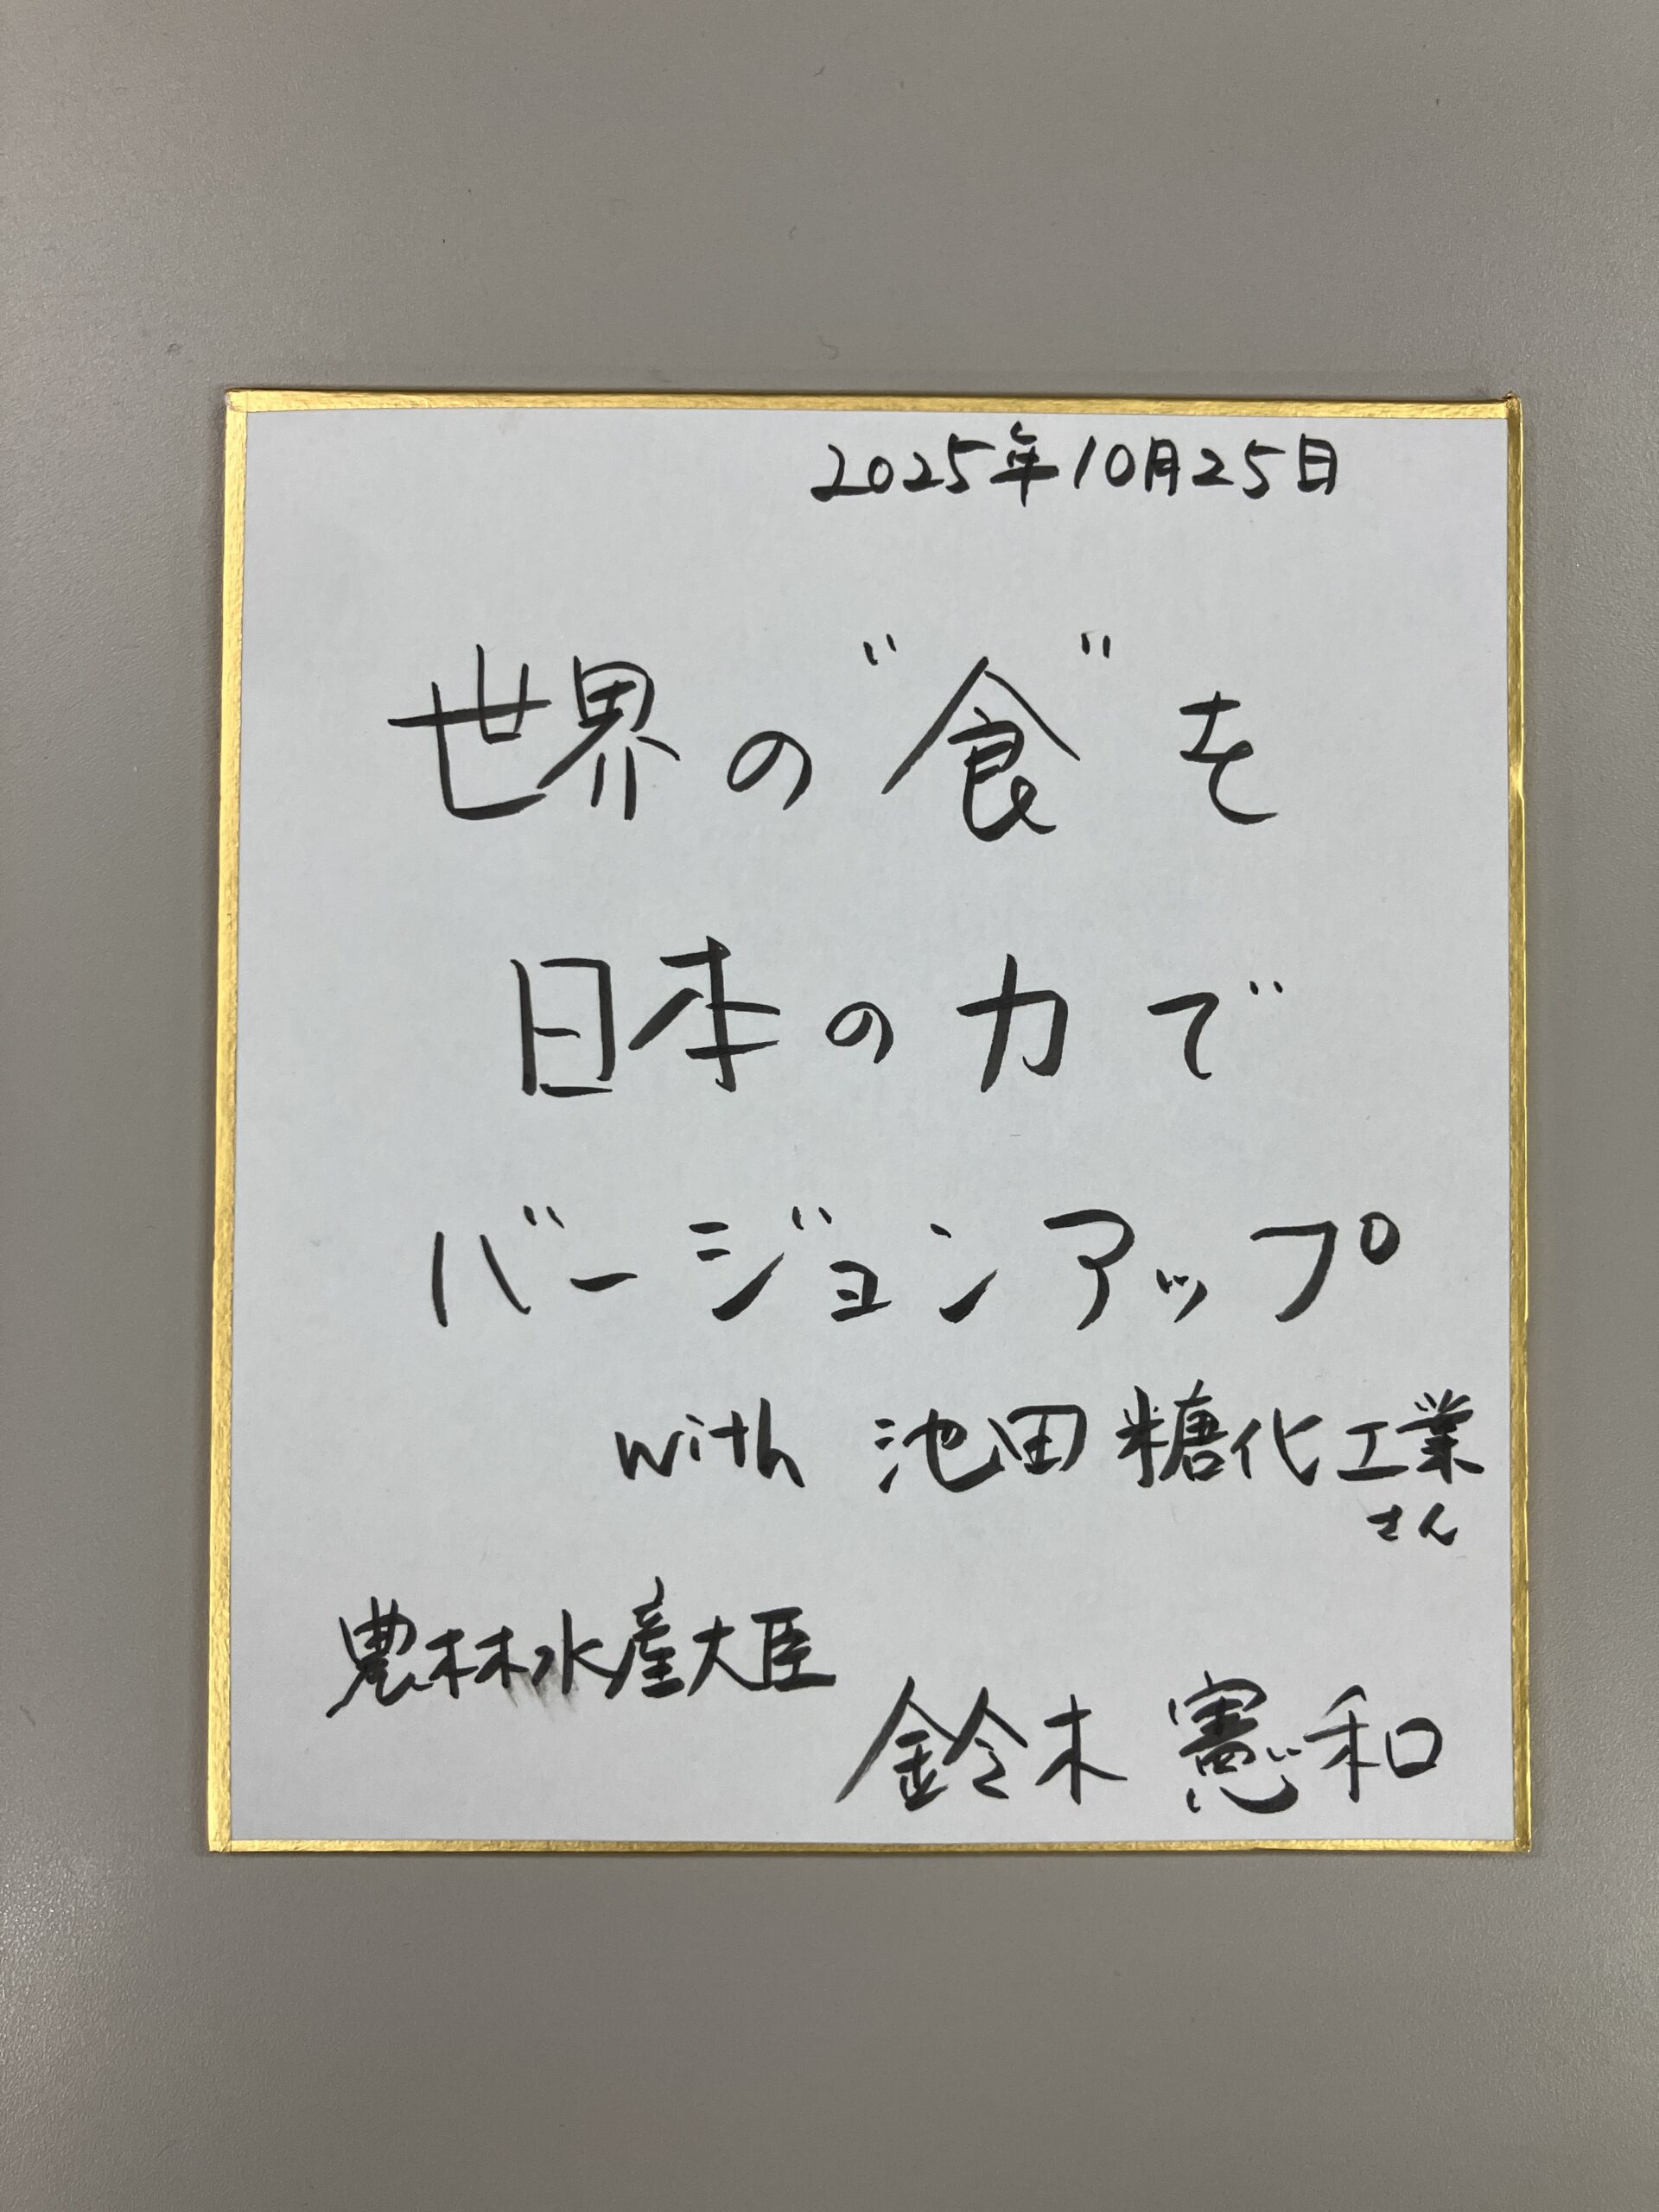 2025年10月25日
世界の"食"を
日本の力で
バージョンアップ
with 池田糖化工業
さん
農林水産大臣
鈴木憲和